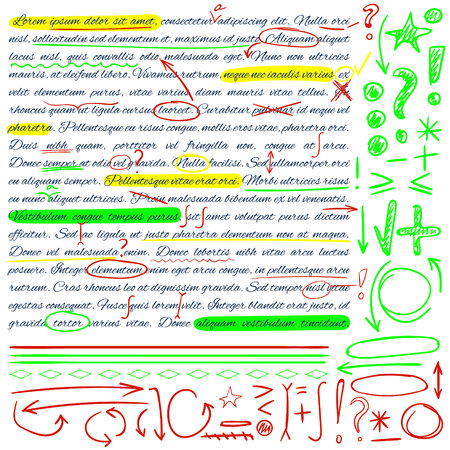 Lorem ipsum dolor sit amet, consectetur adipiscing elit. Nulla orci
nisl, sollicitudin sed elementum et, maximus id justo. Aliquam aliquet
lacus nisl, quis convallis odio malesuada eget. Nunc non ultricies
mauris, at eleifend libero. Vivamus rutrum, neque nec iaculis varius, ex
velit elementum purus, vitae varius diam mauris vitae tellus.
rhoncus quam ut ligula cursus laoreet. Curabitur pulvinar id neque vel
pharetra. Pellentesque eu risus congue, mollis eros vitae, pharetra orci.
Duis nibh quam, porttitor vel fringilla non, congue at arcu.
Donec semper at odio vel gravida. Nulla facilisi. Sed ullamcorper orci
eu aliquam semper. Pellentesque vitae erat orci. Morbi ultricies risus
eu nunc aliquet ultricies. Proin malesuada bibendum ex vel venenatis.
Vestibulum congue tempus purus, sit amet volutpat purus dictum
efficitur. Sed ac ligula ut justo pharetra elementum non at magna.
Donec vel malesuada enim. Donec lobortis nibh vitae arcu luctus
posuere. Integer elementum enim eget arcu congue, in pellentesque arcu
rutrum. Cras rhoncus leo at dignissim gravida. Sed tempor nisl vitae
egestas consequat. Fusce quis lorem velit. Integer blandit erat justo, id
gravida tortor varius vitae. Donec aliquam vestibulum tincidunt